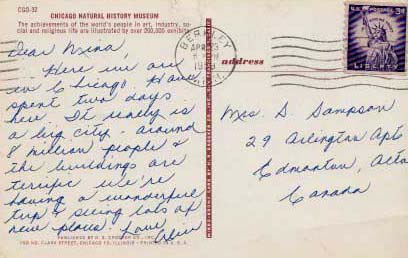 CGO-32
CHICAGO NATURAL HISTORY MUSEUM
The achievements of the world's people in art, industry, so-
cial and religious life are illustrated by over 200,000 exhibits
Dear Nina,
Here we are
in Chicago. Have
spent two days
here. It really is
a big city. Around
8 million people &
the buildings are
terrific. We're
having a wonderful
trip & seeing lots of
new places. Love
PUBLISHED BY
CLARK STREET, CHICAGO, ILLINOIS - PRINTED IN U.S.A.
BERKLEY
APR 23
MICH.
address
U.S. POSTAGE
3¢
LIBERTY
Mrs. S. Sampson
29 Arlington Apts
Edmonton, Alta
Canada